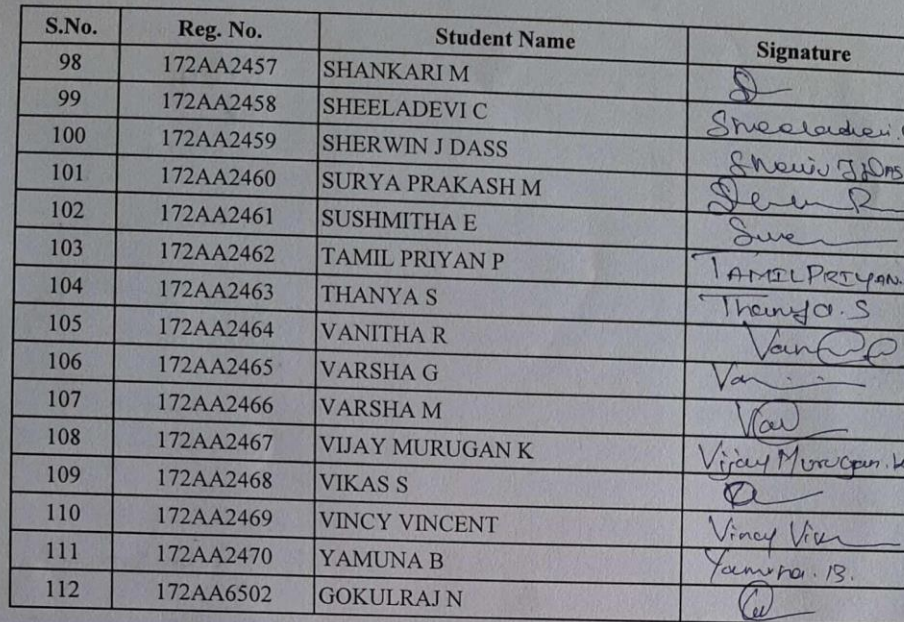 S.No. Reg. No. Student Name Signature
98 172AA2457 SHANKARI M
99 172AA2458 SHEELADEVI C Sheeladevi.
100 172AA2459 SHERWIN J DASS
101 172AA2460 SURYA PRAKASH M
102 172AA2461 SUSHMITHA E
103 172AA2462 TAMIL PRIYAN P TAMILPRIYAN.
104 172AA2463 THANYA S Thanya.S
105 172AA2464 VANITHA R
106 172AA2465 VARSHA G
107 172AA2466 VARSHA M
108 172AA2467 VIJAY MURUGAN K Vijay Murugan.K
109 172AA2468 VIKAS S
110 172AA2469 VINCY VINCENT Vincy
111 172AA2470 YAMUNA B Yamuna.B.
112 172AA6502 GOKULRAJ N